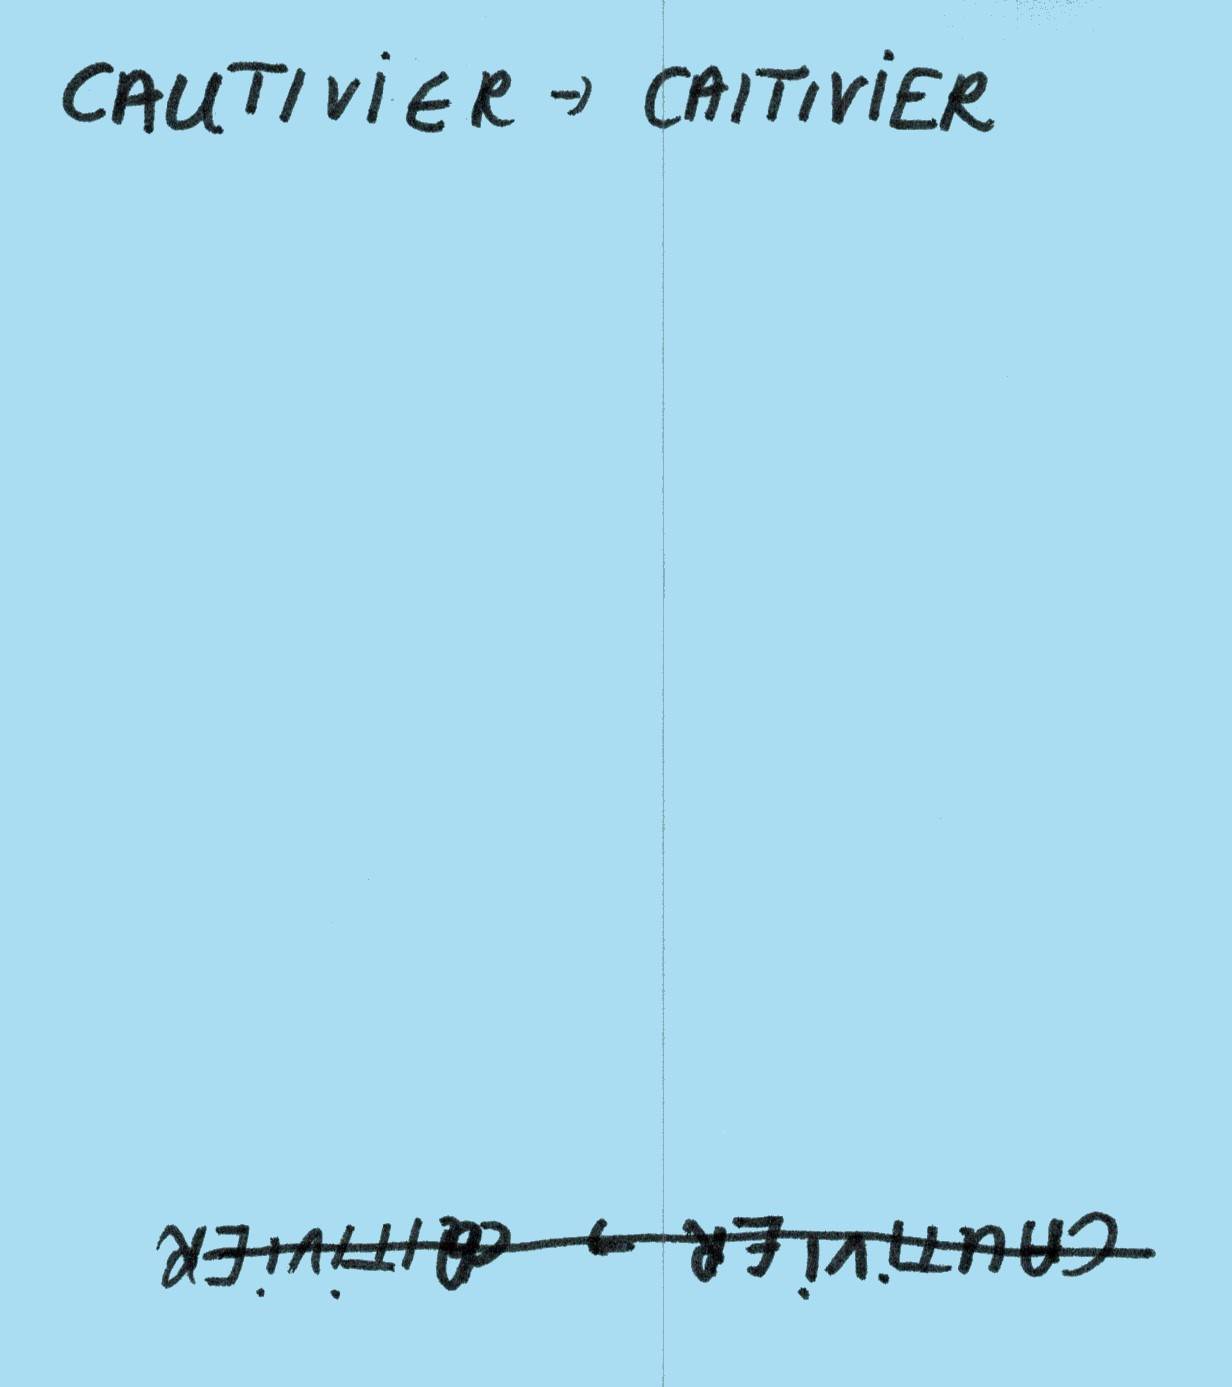 CAUTIVIER → CAITIVIER
CAUTIVIER → CAITIVIER